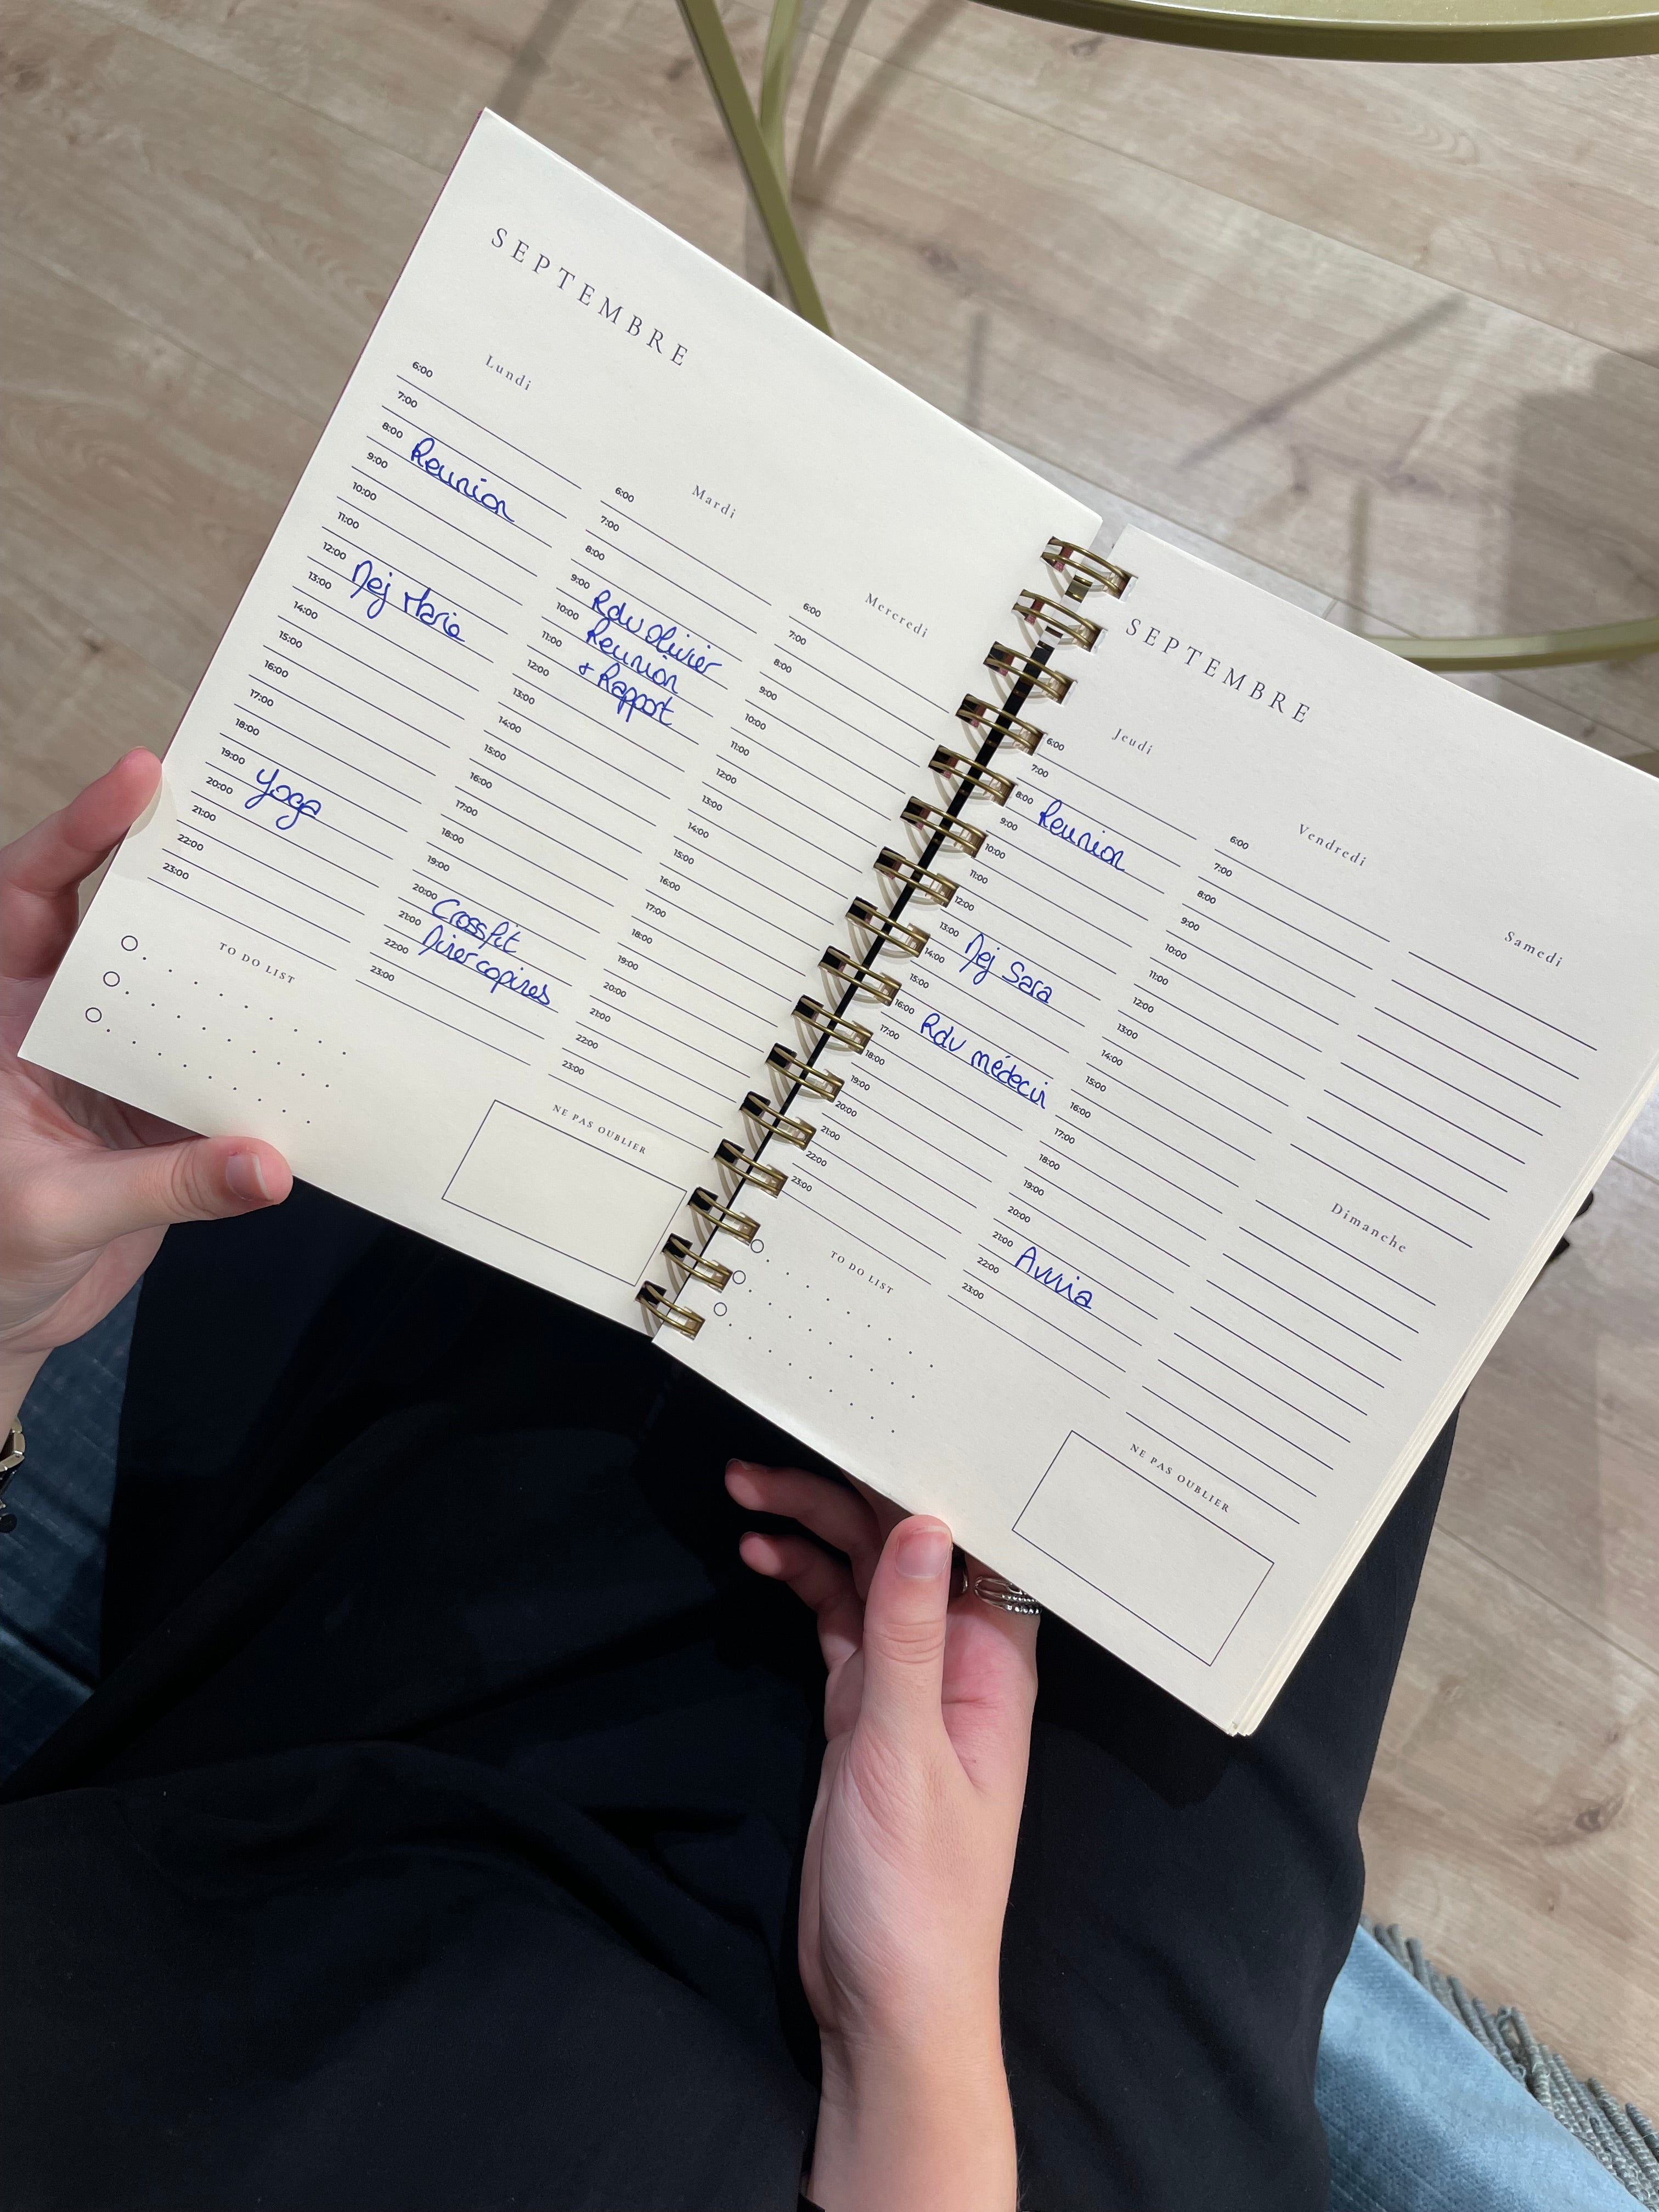 SEPTEMBRE
Lundi
6:00
7:00
8:00 Reunion
9:00
10:00
11:00
12:00 Dej Marie
13:00
14:00
15:00
16:00
17:00
18:00
19:00 Yoga
20:00
21:00
22:00
23:00
Mardi
6:00
7:00
8:00
9:00 Rdv Olivier
10:00 Reunion
11:00 + Rapport
12:00
13:00
14:00
15:00
16:00
17:00
18:00
19:00
20:00 Crossfit
21:00 Diner copines
22:00
23:00
Mercredi
6:00
7:00
8:00
9:00
10:00
11:00
12:00
13:00
14:00
15:00
16:00
17:00
18:00
19:00
20:00
21:00
22:00
23:00
TO DO LIST
NE PAS OUBLIER
SEPTEMBRE
Jeudi
6:00
7:00
8:00 Reunion
9:00
10:00
11:00
12:00
13:00 Dej Sara
14:00
15:00
16:00 Rdv médecin
17:00
18:00
19:00
20:00
21:00
22:00
23:00
Vendredi
6:00
7:00
8:00
9:00
10:00
11:00
12:00
13:00
14:00
15:00
16:00
17:00
18:00
19:00
20:00
21:00
22:00
23:00
Samedi
Dimanche
TO DO LIST
NE PAS OUBLIER